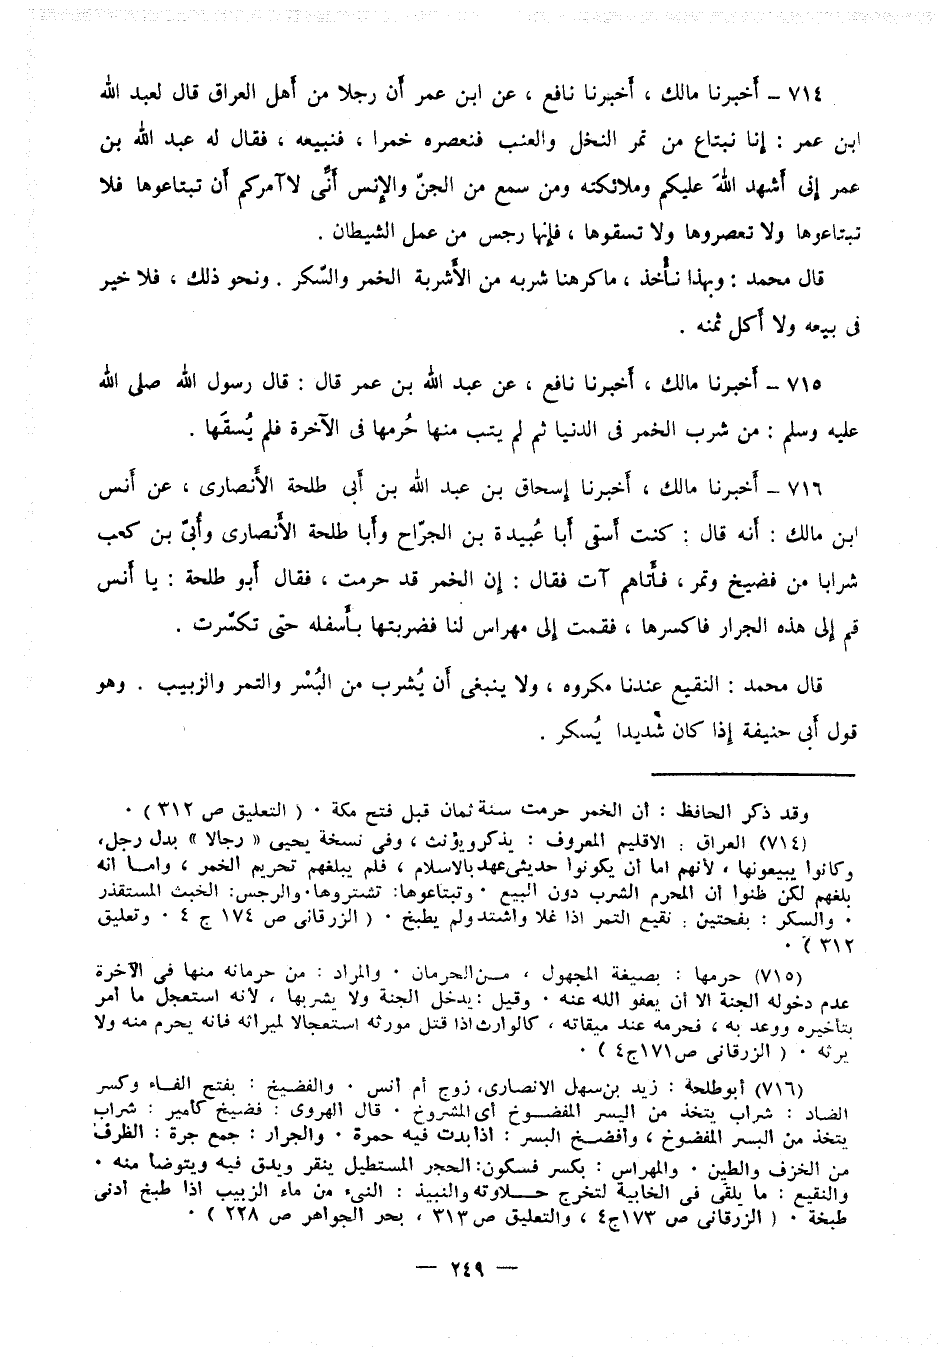 ٧١٤ – أخبرنا مالك ، أخبرنا نافع ، عن ابن عمر أن رجلا من أهل العراق قال لعبد الله
ابن عمر : إنا نبتاع من تمر النخل والعنب فنعصره خمرا ، فنبيعه ، فقال له عبد الله بن
عمر إنى أشهد اللهَ عليكم وملائكته ومن سمع من الجنّ والإنس أنِّى لا آمركم أن تبتاعوها فلا
تبتاعوها ولا تعصروها ولا تسقوها ، فإنها رجس من عمل الشيطان .
قال محمد : وبهذا نأخذ ، ماكرهنا شربه من الأشربة الخمر والسّكر . ونحو ذلك ، فلا خير
فى بيعه ولا أكل ثمنه .
٧١٥ – أخبرنا مالك ، أخبرنا نافع ، عن عبد الله بن عمر قال : قال رسول الله صلى الله
عليه وسلم : من شرب الخمر فى الدنيا ثم لم يتب منها حُرمها فى الآخرة فلم يُسقَها .
٧١٦ – أخبرنا مالك ، أخبرنا إسحاق بن عبد الله بن أبى طلحة الأنصارى ، عن أنس
ابن مالك : أنه قال : كنت أسقى أبا عُبيدة بن الجرّاح وأبا طلحة الأنصارى وأُبىّ بن كعب
شرابا من فضيخ وتمر ، فأتاهم آت فقال : إن الخمر قد حرمت ، فقال أبو طلحة : يا أنس
قم إلى هذه الجرار فاكسرها ، فقمت إلى مهراس لنا فضربتها بأسفله حتى تكسّرت .
قال محمد : النقيع عندنا مكروه ، ولا ينبغى أن يُشرب من البُسْر والتمر والزبيب . وهو
قول أبى حنيفة إذا كان شديدا يُسكر .
وقد ذكر الحافظ : أن الخمر حرمت سنة ثمان قبل فتح مكة . ( التعليق ص ٣١٢ ) .
(٧١٤) العراق : الاقليم المعروف : يذكر ويؤنث ، وفى نسخة يحيى « رجالا » بدل رجل،
وكانوا يبيعونها ، لأنهم اما أن يكونوا حديثى عهد بالاسلام ، فلم يبلغهم تحريم الخمر ، واما انه
بلغهم لكن ظنوا أن المحرم الشرب دون البيع . وتبتاعوها: تشتروها. والرجس: الخبث المستقذر
. والسكر : بفحتين : نقيع التمر اذا غلا واشتد ولم يطبخ . ( الزرقانى ص ١٧٤ ج ٤ . وتعليق
٣١٢ ) .
(٧١٥) حرمها : بصيغة المجهول ، من الحرمان . والمراد : من حرمانه منها فى الآخرة
عدم دخوله الجنة الا أن يعفو الله عنه . وقيل : يدخل الجنة ولا يشربها ، لأنه استعجل ما أمر
بتأخيره ووعد به ، فحرمه عند ميقاته ، كالوارث اذا قتل مورثه استعجالا لميراثه فانه يحرم منه ولا
يرثه . ( الزرقانى ص١٧١ج٤ ) .
(٧١٦) أبو طلحة : زيد بن سهل الانصارى، زوج أم أنس . والفضيخ : بفتح الفاء وكسر
الضاد : شراب يتخذ من البسر المفضوخ أى المشروخ . قال الهروى : فضيخ كأمير : شراب
يتخذ من البسر المفضوخ ، وأفضخ البسر : اذا بدت فيه حمرة . والجرار : جمع جرة : الظرف
من الخزف والطين . والمهراس : بكسر فسكون: الحجر المستطيل ينقر ويدق فيه ويتوضأ منه .
والنقيع : ما يلقى فى الخابية لتخرج حلاوته والنبيذ : النىء من ماء الزبيب اذا طبخ أدنى
طبخة . ( الزرقانى ص ١٧٣ج٤ ، والتعليق ص ٣١٣ ، بحر الجواهر ص ٢٢٨ ) .
— ٢٤٩ —